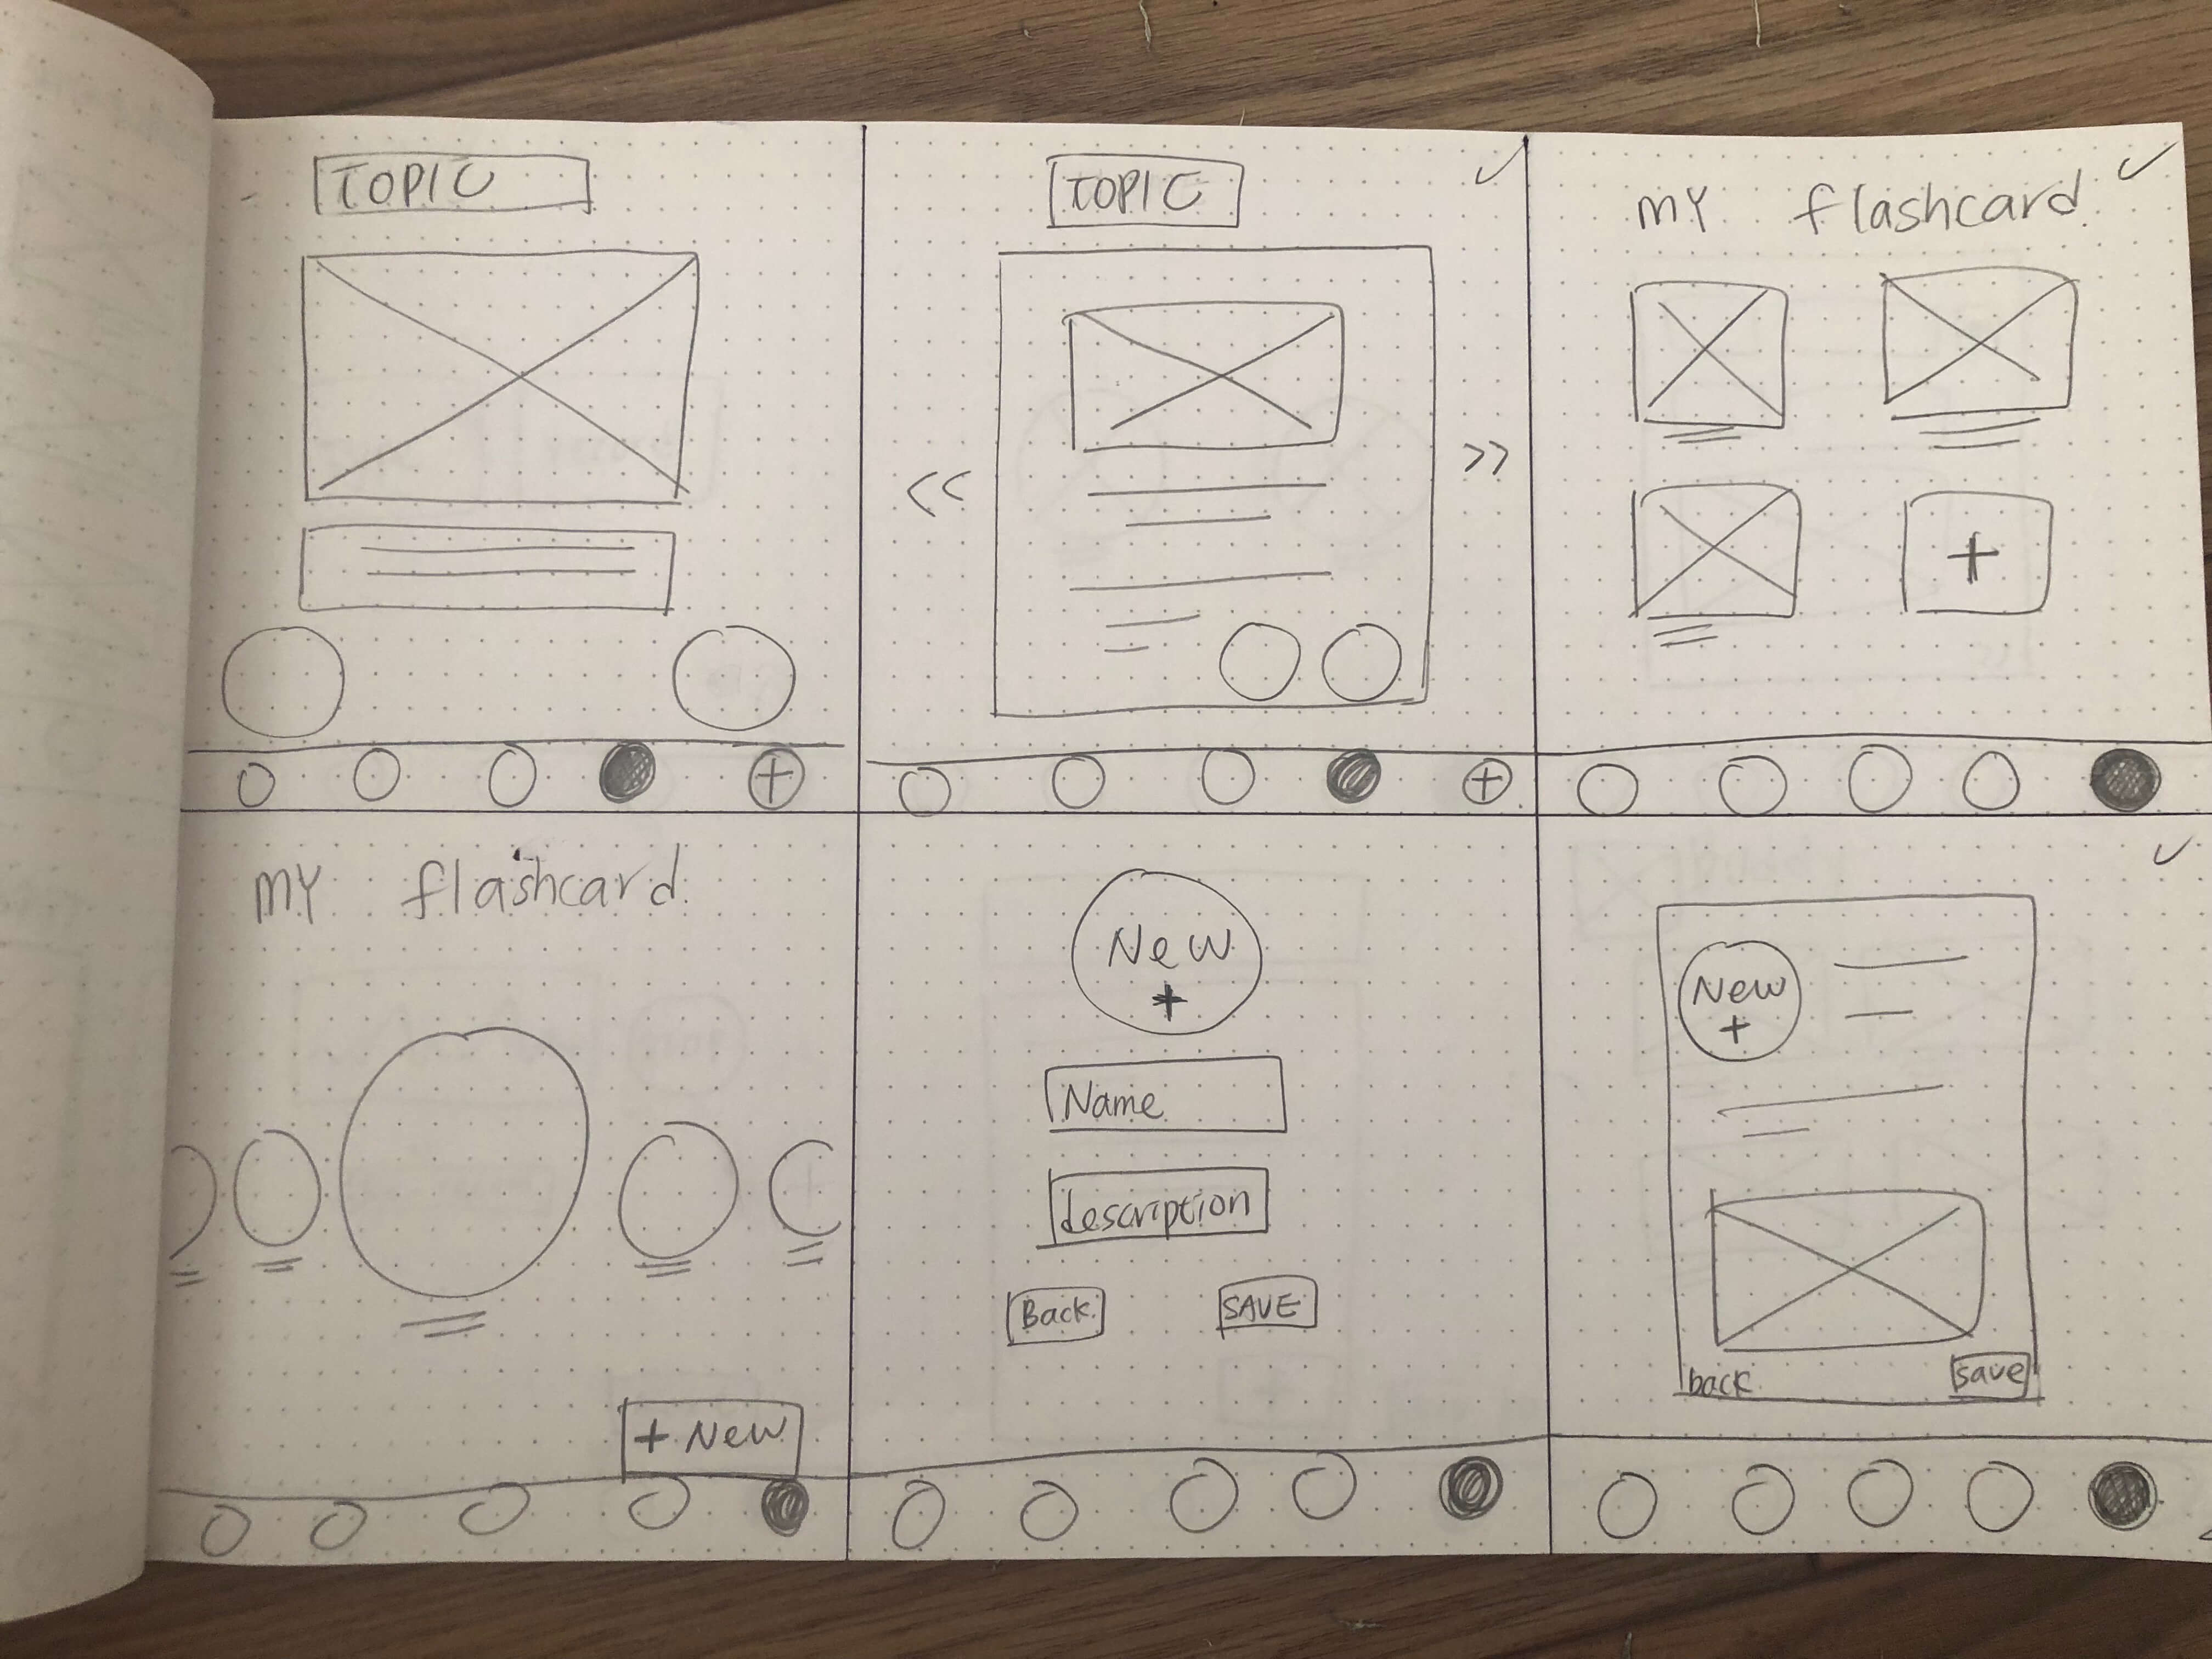 TOPIC
TOPIC
my flashcard
+
+
+
my flashcard
+ New
New
+
Name
description
Back
SAVE
New
+
back
save